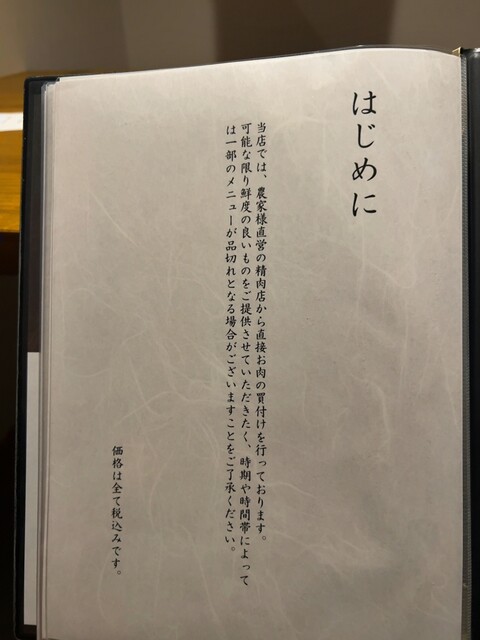 はじめに
当店では、農家様直営の精肉店から直接お肉の買付けを行っております。
可能な限り鮮度の良いものをご提供させていただきたく、時期や時間帯によって
は一部のメニューが品切れとなる場合がございますことをご了承ください。
価格は全て税込みです。